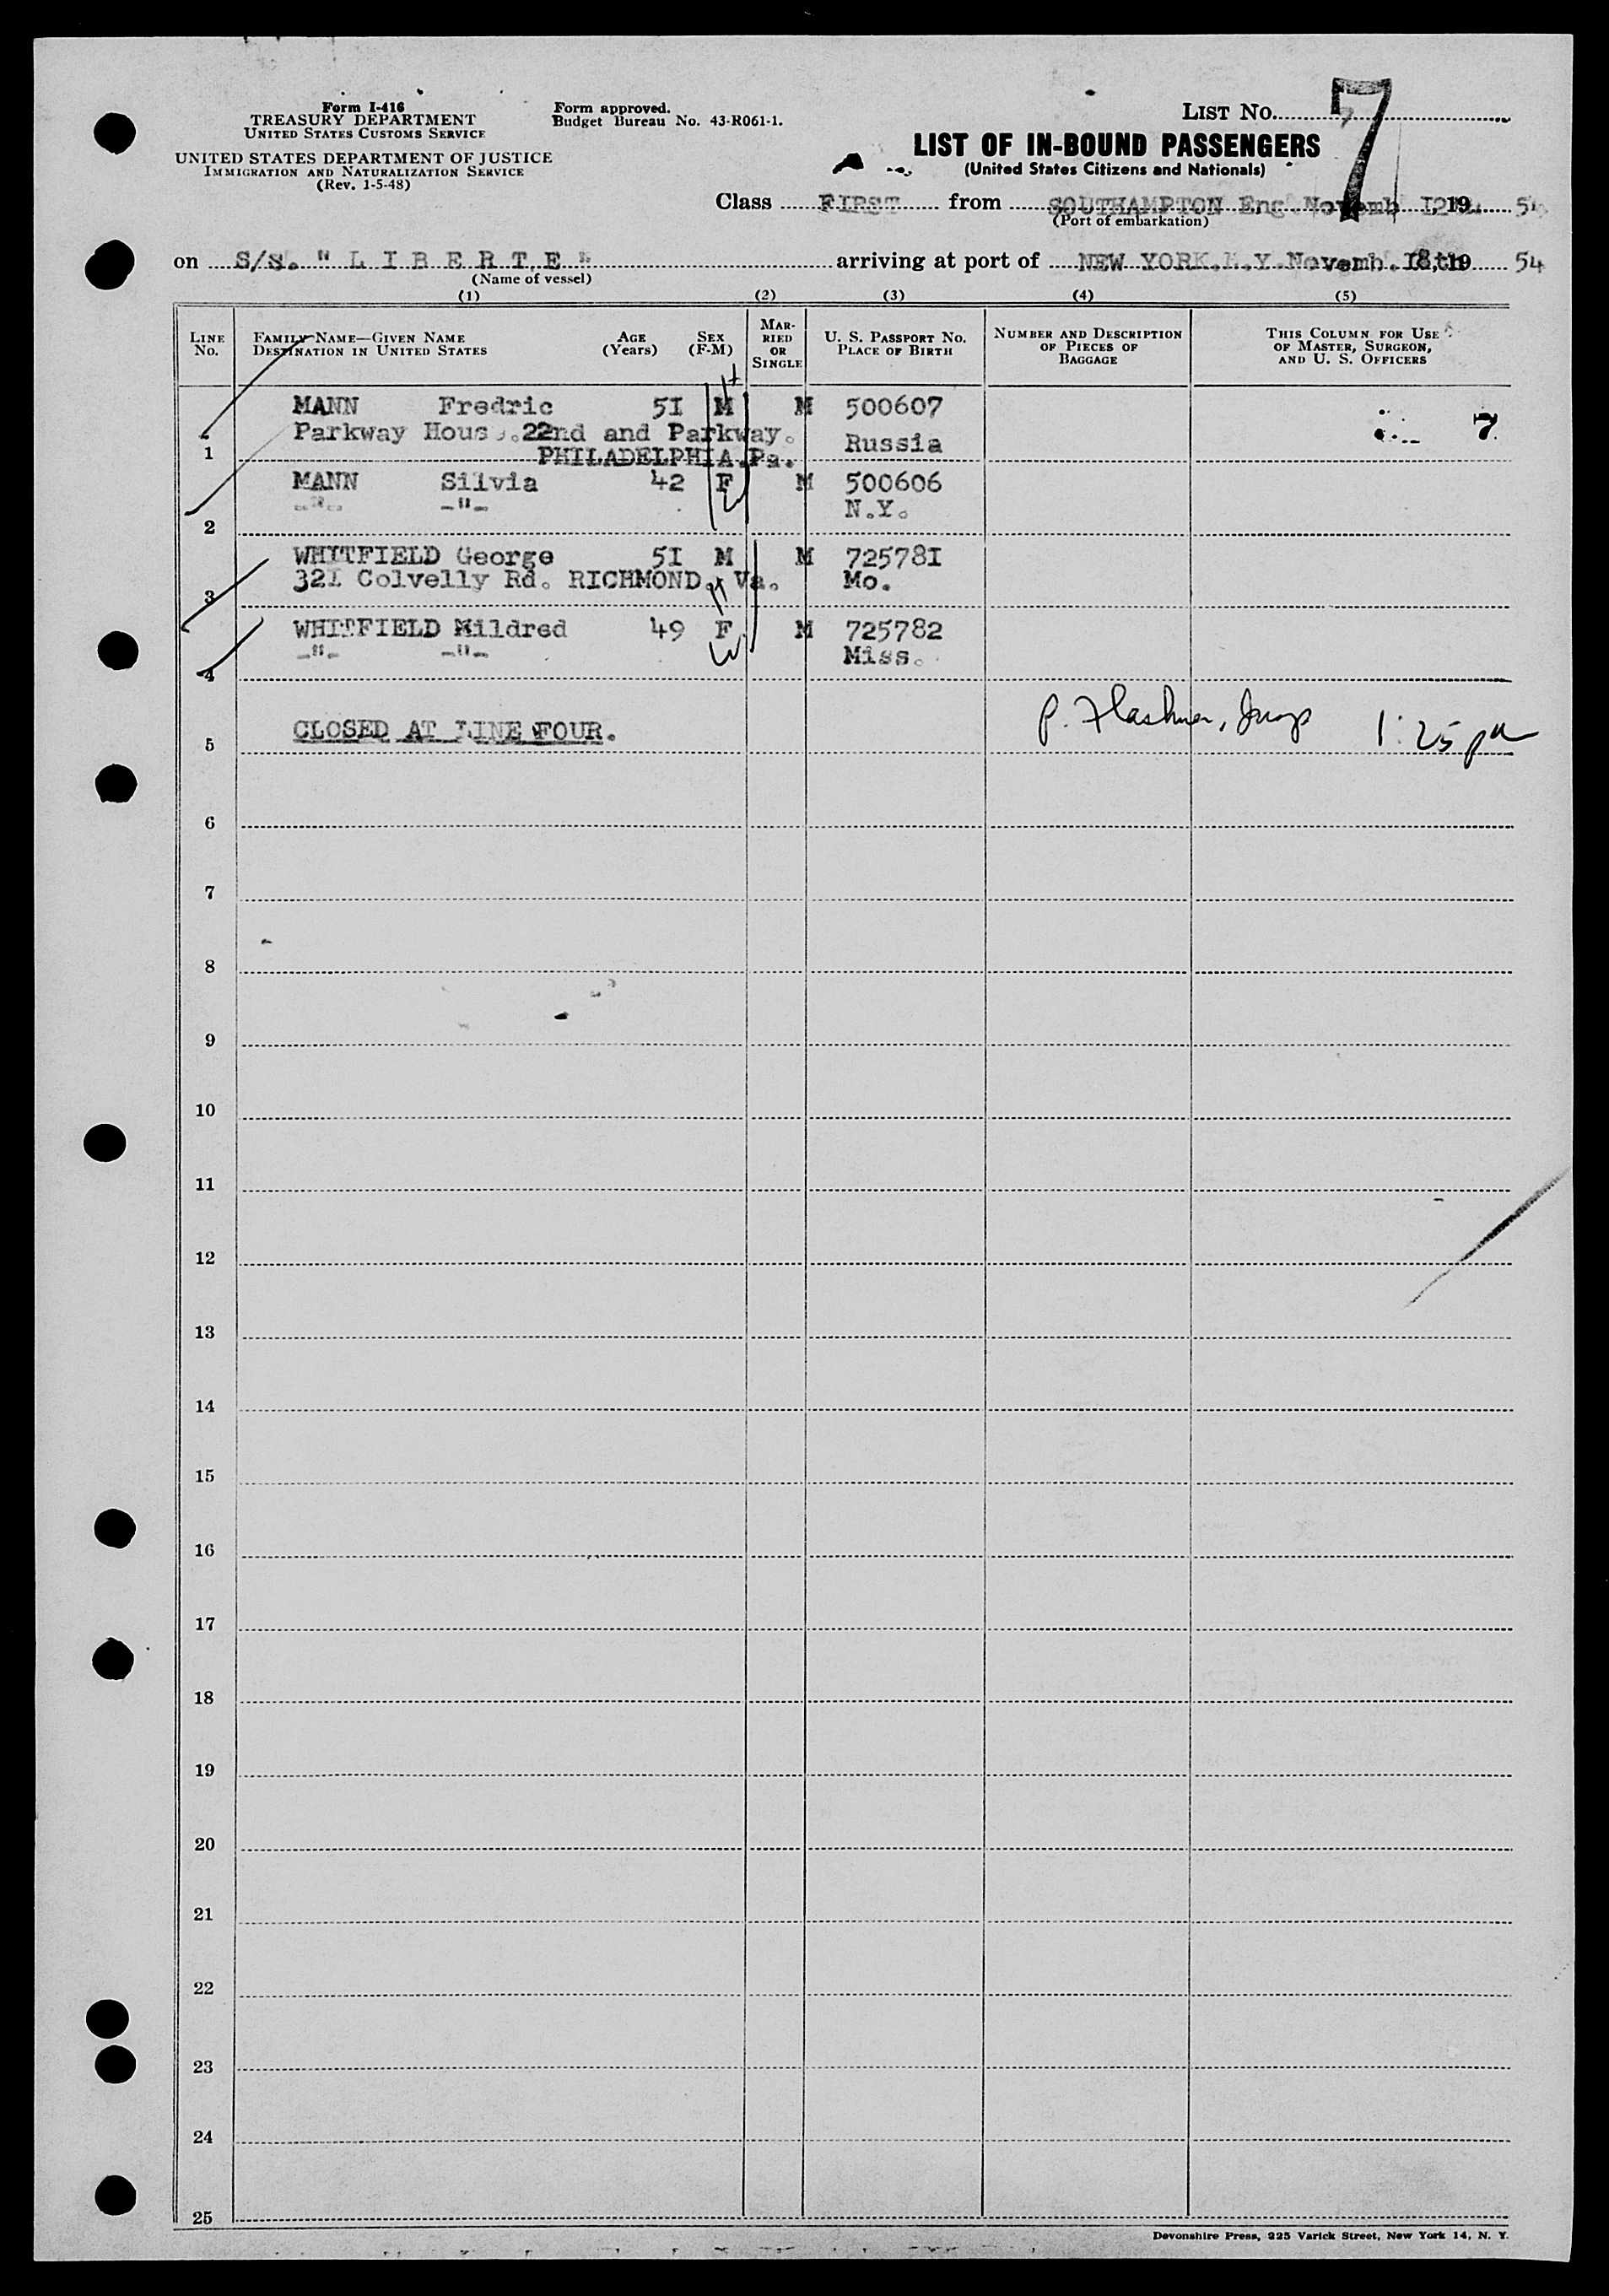 Form I-416
TREASURY DEPARTMENT
UNITED STATES CUSTOMS SERVICE
UNITED STATES DEPARTMENT OF JUSTICE
IMMIGRATION AND NATURALIZATION SERVICE
(Rev. 1-5-48)
Form approved.
Budget Bureau No. 43-R061-1.
LIST No. 7
LIST OF IN-BOUND PASSENGERS
(United States Citizens and Nationals)
Class FIRST from SOUTHAMPTON Eng. Novemb 12 19 54
(Port of embarkation)
on S/s. " L I B E R T E " arriving at port of NEW YORK.N.Y. Novemb. 18th 19 54
(Name of vessel)
(1) (2) (3) (4) (5)
LINE No.
FAMILY NAME—GIVEN NAME
DESTINATION IN UNITED STATES
AGE (Years)
SEX (F-M)
MARRIED OR SINGLE
U. S. PASSPORT NO.
PLACE OF BIRTH
NUMBER AND DESCRIPTION OF PIECES OF BAGGAGE
THIS COLUMN FOR USE OF MASTER, SURGEON, AND U. S. OFFICERS
MANN Fredric 51 M M 500607 7
Parkway Hous .22nd and Parkway. Russia
1 PHILADELPHIA.Pa.
MANN Silvia 42 F M 500606
-"- -"- N.Y.
2
WHITFIELD George 51 M M 725781
321 Colvelly Rd. RICHMOND. Va. Mo.
3
WHITFIELD Mildred 49 F M 725782
-"- -"- Miss.
4
CLOSED AT LINE FOUR.
P. Flashner, 1:25 pm
5
6
7
8
9
10
11
12
13
14
15
16
17
18
19
20
21
22
23
24
25
Devonshire Press, 225 Varick Street, New York 14, N. Y.